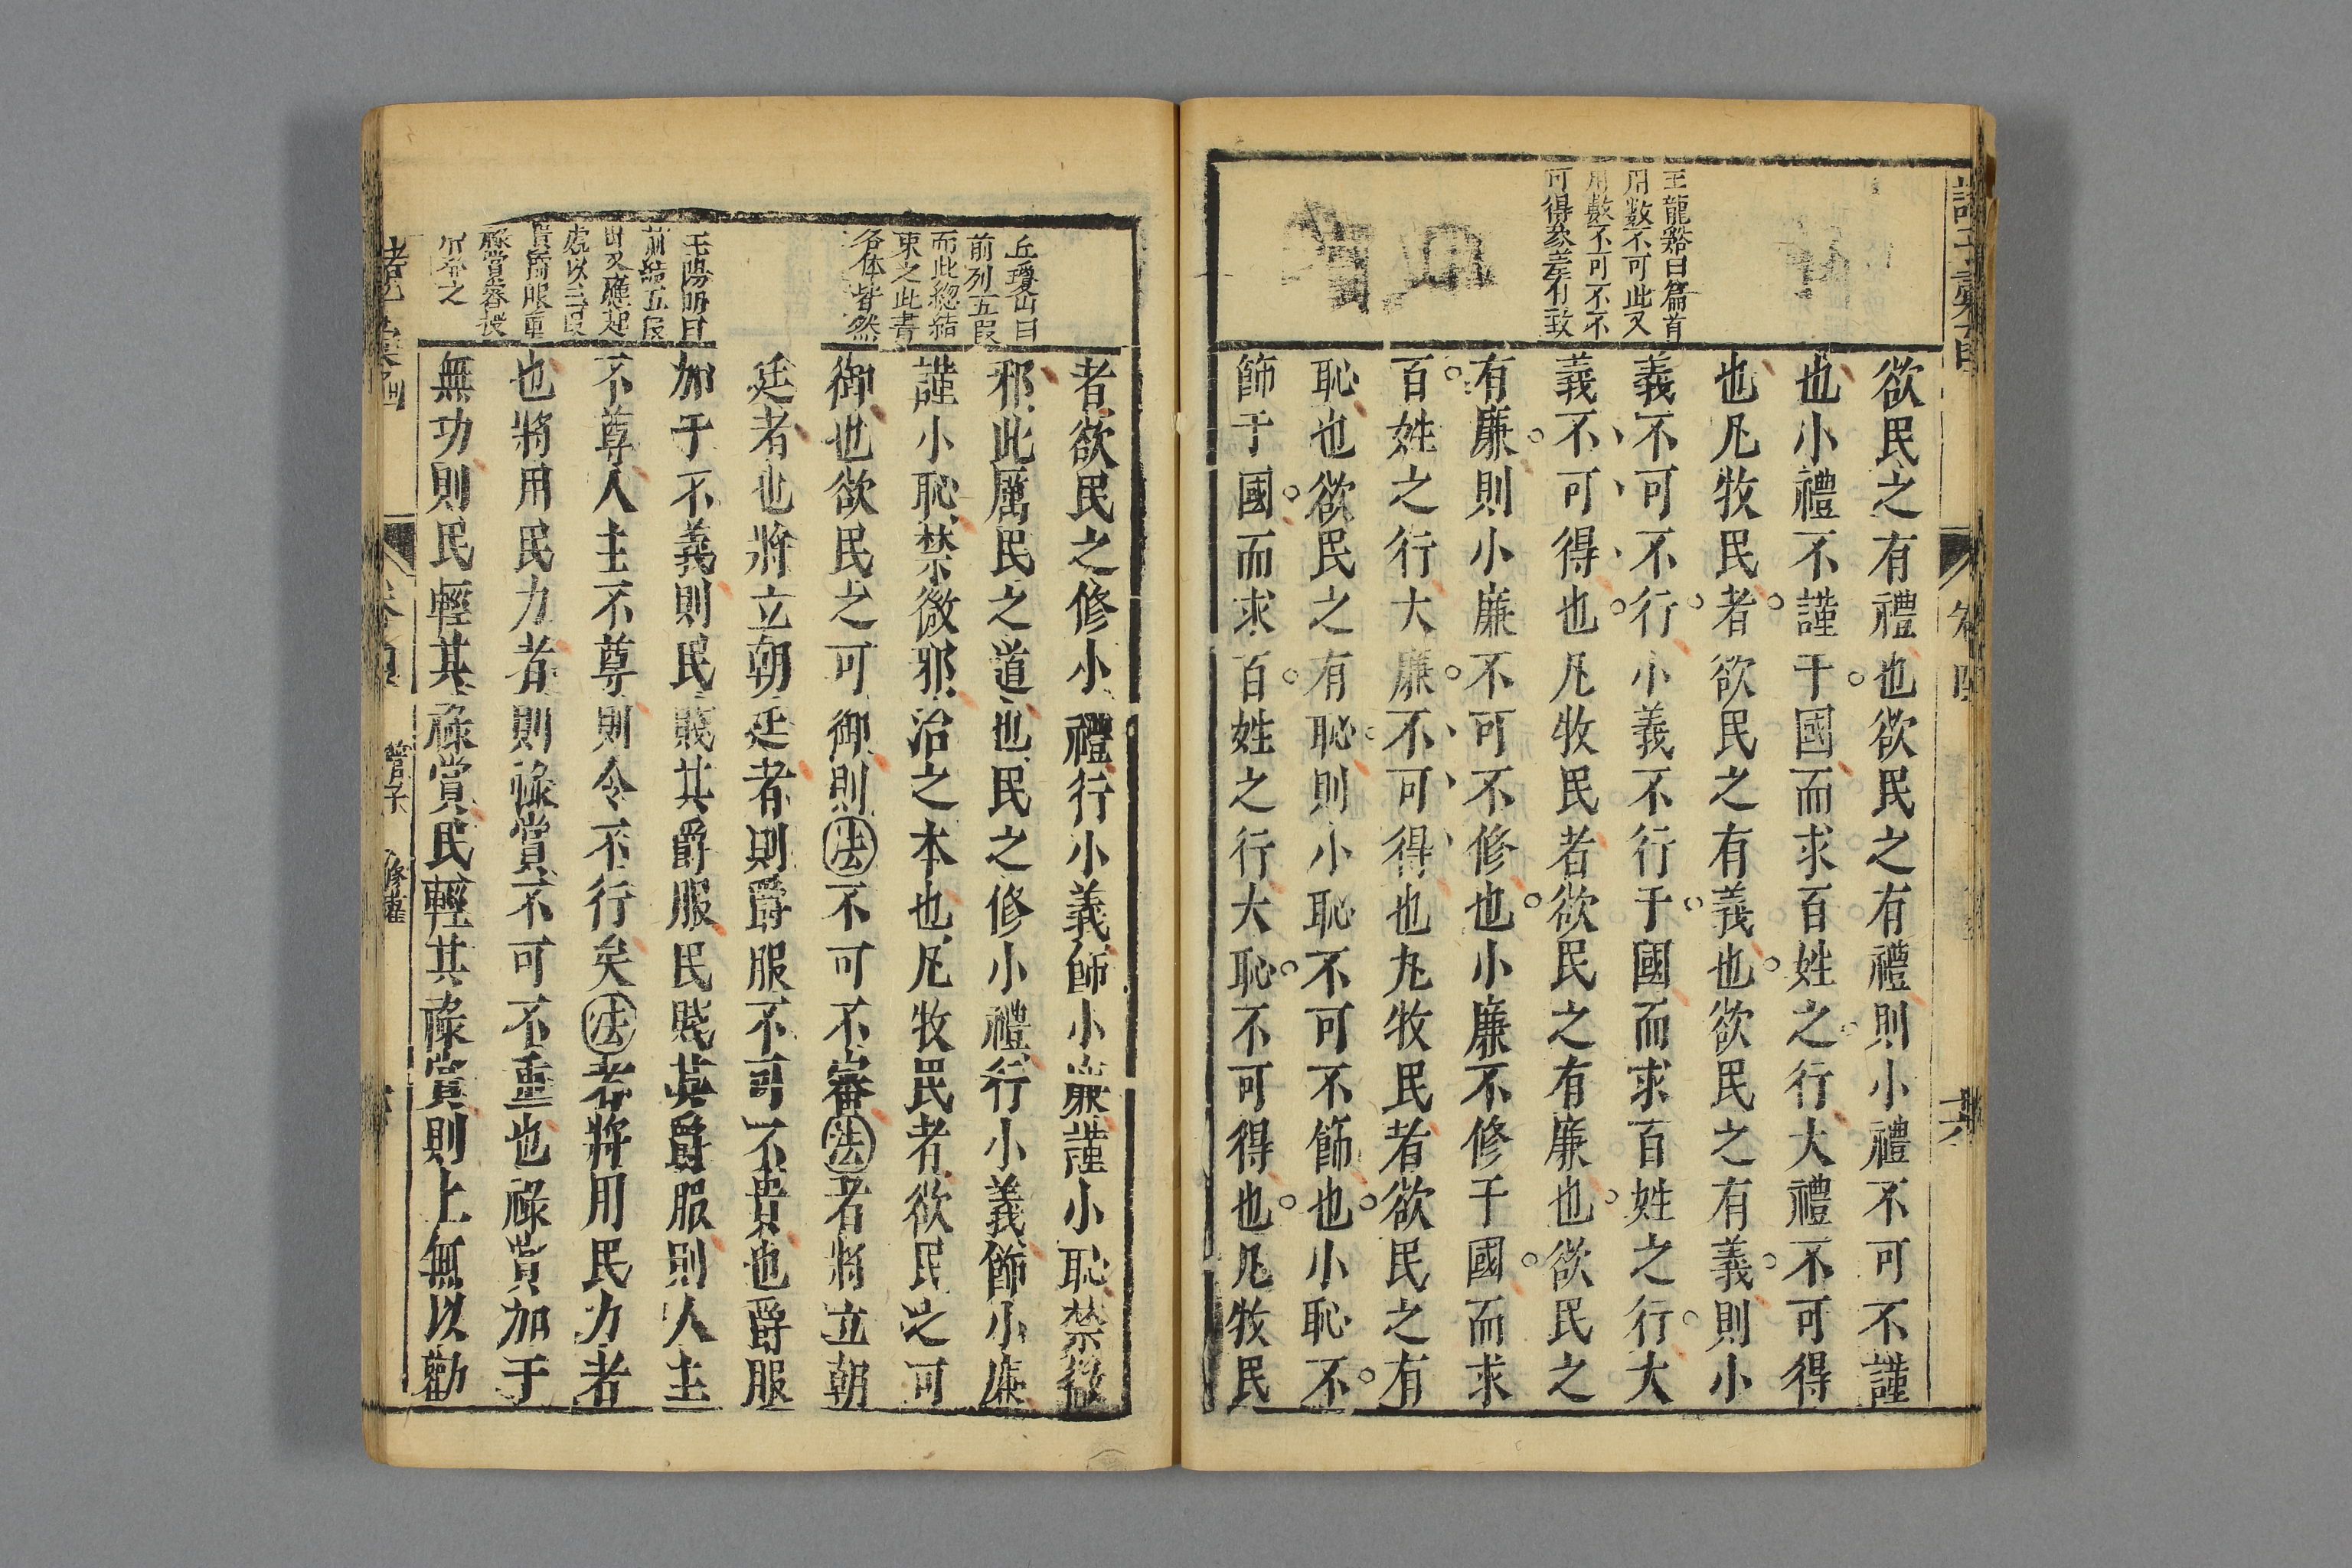 王龍谿曰篇首
用数不可此又
用數不可不不
可得叅差有致
欲民之有禮也欲民之有禮則小禮不可不謹
也小禮不謹于國而求百姓之行大禮不可得
也凡牧民者欲民之有義也欲民之有義則小
義不可不行小義不行于國而求百姓之行大
義不可得也凡牧民者欲民之有廉也欲民之
有廉則小廉不可不修也小廉不修于國而求
百姓之行大廉不可得也凡牧民者欲民之有
恥也欲民之有恥則小恥不可不飾也小恥不
飾于國而求百姓之行大恥不可得也凡牧民
卷四
丘瓊山曰
前列五段
而此總結
束之此書
各体皆然
王陽明曰
前結五段
賞審授
者欲民之修小禮行小義飾小廉謹小恥禁微
邪此厲民之道也民之修小禮行小義飾小廉
謹小恥禁微邪治之本也凡牧民者欲民之可
御也欲民之可御則法不可不審法者將立朝
廷者也將立朝廷者則爵服不可不貴也爵服
加于不義則民賤其爵服民賤其爵服則人主
不尊人主不尊則令不行矣法者將用民力者
也將用民力者則祿賞不可不重也祿賞加于
無功則民輕其祿賞民輕其祿賞則上無以勸
管子
修權